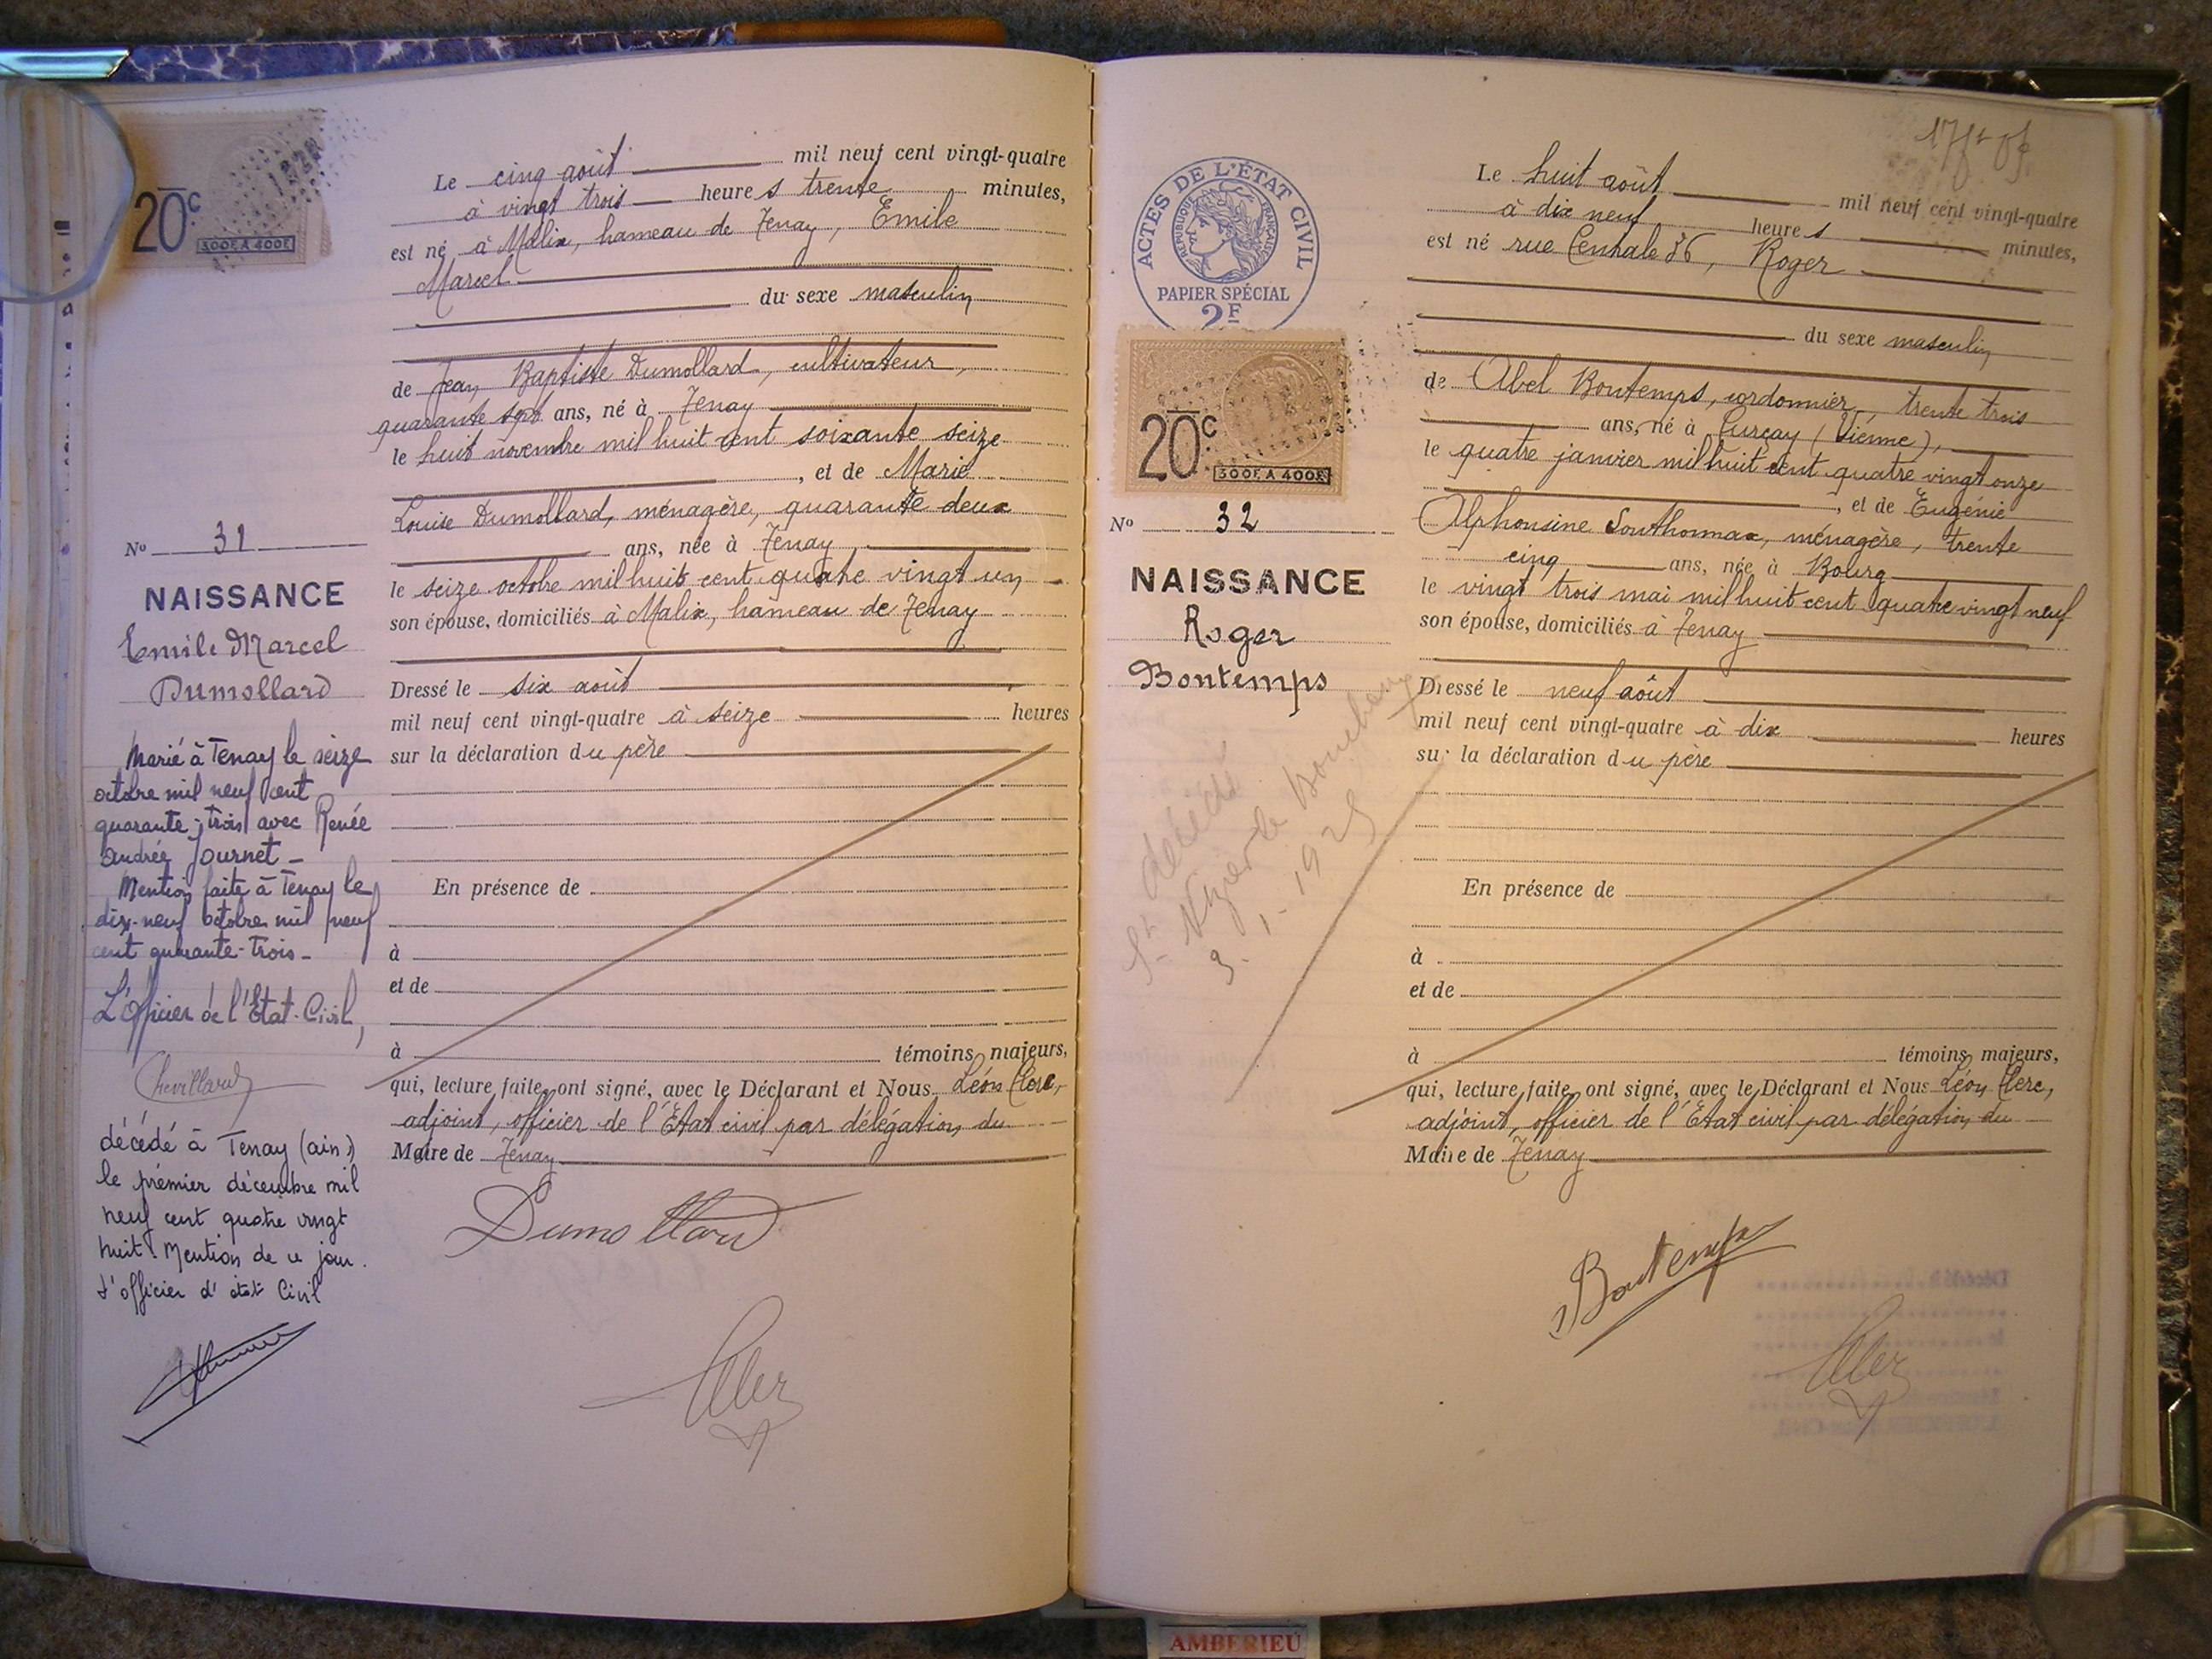 20c
300F. A 400F.
No 31
NAISSANCE
Emile Marcel
Dumollard
Marié à Tenay le seize
octobre mil neuf cent
quarante-trois avec Renée
Andrée Journet _
Mention faite à Tenay le
dix-neuf octobre mil neuf
cent quarante-trois _
L'Officier de l'État-Civil,
Chevillard
décédé à Tenay (ain)
le prémier décembre mil
neuf cent quatre vingt
huit. Mention de ce jour.
L'officier d'état Civil
Le cinq août mil neuf cent vingt-quatre
à vingt trois heures trente minutes,
est né à Malix, hameau de Tenay, Emile
Marcel
du sexe masculin
de Jean Baptiste Dumollard, cultivateur,
quarante sept ans, né à Tenay
le huit novembre mil huit cent soixante seize
, et de Marie
Louise Dumollard, ménagère, quarante deux
ans, née à Tenay
le seize octobre mil huit cent quatre vingt un
son épouse, domiciliés à Malix, hameau de Tenay
Dressé le six août
mil neuf cent vingt-quatre à seize heures
sur la déclaration du père
En présence de
à
et de
à témoins majeurs,
qui, lecture faite, ont signé, avec le Déclarant et Nous, Léon Clerc,
adjoint, officier de l'État civil par délégation du
Maire de Tenay
Dumollard
ACTES DE L'ÉTAT CIVIL
RÉPUBLIQUE FRANÇAISE
PAPIER SPÉCIAL
2F
20c
300F. A 400F.
No 32
NAISSANCE
Roger
Bontemps
décédé
St Nizier le Bouchoux
3-1-1925
Le huit août mil neuf cent vingt-quatre
à dix neuf heures minutes,
est né rue Centrale 36, Roger
du sexe masculin
de Abel Bontemps, cordonnier, trente trois
ans, né à Curçay (Vienne),
le quatre janvier mil huit cent quatre vingt onze
, et de Eugénie
Alphonsine Southonnax, ménagère, trente
cinq ans, née à Bourg
le vingt trois mai mil huit cent quatre vingt neuf
son épouse, domiciliés à Tenay
Dressé le neuf août
mil neuf cent vingt-quatre à dix heures
sur la déclaration du père
En présence de
à
et de
à témoins majeurs,
qui, lecture faite, ont signé, avec le Déclarant et Nous Léon Clerc,
adjoint, officier de l'État civil par délégation du
Maire de Tenay
Bontemps
AMBERIEU